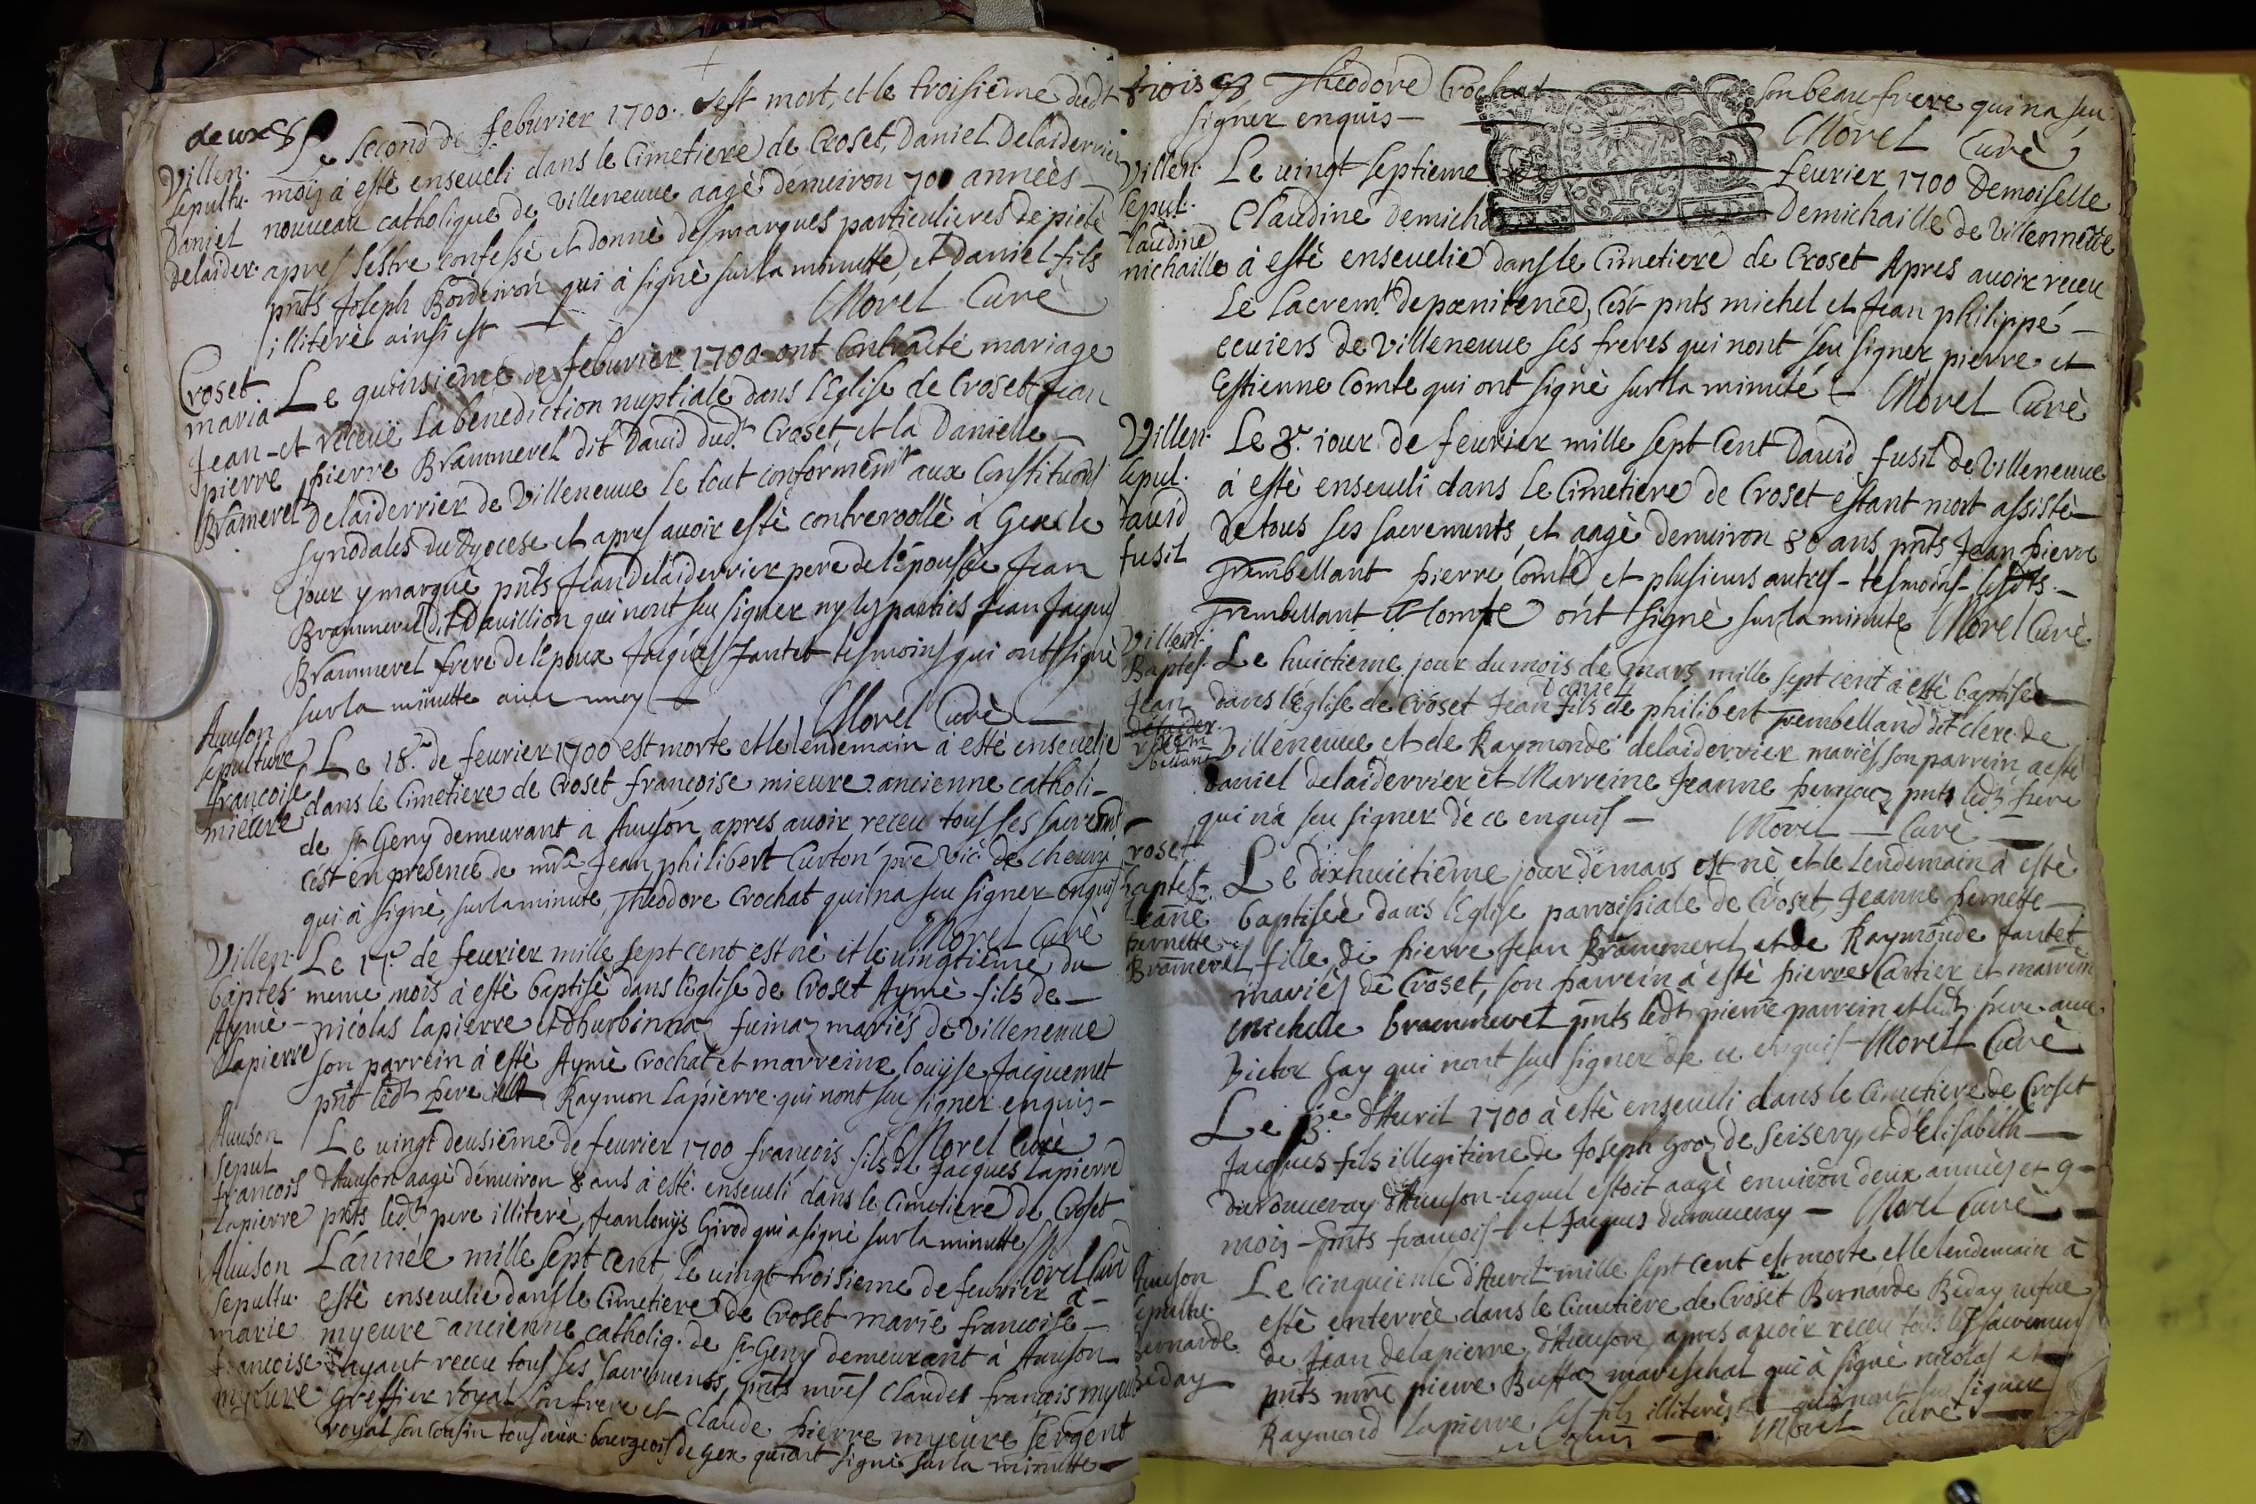 deux
Villen.
sepultu.
Daniel
delaider.
Le second de feburier 1700. est mort, et le troisiême dudt
mois à estè enseueli dans le Cimetiere de Croset, Daniel Delaiderrier
nouueau catholique de Villeneuue aagè d'enuiron 70 années
apres s'estre confessè et donnè des marques particulieres de pieté
pnts Joseph Bordeiron qui à signè sur la minutte, et Daniel fils
illiterè ainsi est Morel Curè
Croset
maria
Jean
pierre
Bramerel
Le quinsiême de feburier 1700 ont Contracté mariage
et receuë La benediction nuptiale dans l'Eglise de Croset Jean
pierre Brammerel dit Dauid dudt. Croset, et la Danielle
Delaiderrier de Villeneuue le tout conformemt aux Constituons
synodales du Dyocese et apres auoir estè contreroollè à Gex le
jour y marquè pnts Jean Delaiderrier pere de l'epousée Jean
Brammerel dit Dauillion qui n'ont seu signer ny les parties Jean Jacques
Brammerel frere de l'epoux Jacques Jantet tesmoins qui ont signè
sur la minutte auec moy Morel Curè
Auuson
sepulture
françoise
mieure
Le 18e. de feurier 1700 est morte et le lendemain à estè enseuelie
dans le Cimetiere de Croset françoise mieure ancienne catholi-
de St Geny demeurant à Auuson, apres auoir receu tous ses sacremts
c'est en presence de mre Jean philibert Curton pre Vic. de Cheury
qui à signè sur la minute, Theodore Crochat qui n'a seu signer enquis
Morel Curè
Villen.
baptes.
Aymè
Lapierre
Le 17e. de feurier mille sept cent est né et le uingtiême du
meme mois à estè baptisè dans l'eglise de Croset Aymè fils de
nicolas lapierre et Thurbinna fuinaz mariés de Villeneuue
son parrein à estè Aymè Crochat et marreine louyse Jacquemet
pnt ledt pere et Raymon Lapierre qui n'ont seu signer enquis
Morel Curè
Auuson
sepul
francois
Lapierre
Le uingt deusiême de feurier 1700 francois fils de Jacques Lapierre
d'Auuson aagè d'enuiron 8 ans à estè enseueli dans le Cimetiere de Croset
pnts ledt pere illiterè, Jean louys Girod qui a signè sur la minutte
Morel Curè
Auuson
sepultu.
marie
francoise
myeure
L'année mille sept cent, le uingt troisieme de feurier à
estè enseuelie dans le Cimetiere de Croset marie francoise
myeure ancienne catholiq. de St Geny demeurant à Auuson
ayant receu tous ses sacrements, pnts mres Claudes francois myeure
Greffier royal son frere et Claude pierre myeure sergent
royal son cousin tous deux bourgeois de Gex qui ont signè sur la minutte
trois Theodore Crochat son beau frere qui n'a seu
signer enquis Morel Curè
Villen.
sepul.
Claudine
michaille
Le uingt septieme de feurier 1700 Demoiselle
Claudine Demicha Demichaille de Villenneuue
à estè enseuelie dans le Cimetiere de Croset Apres auoir receu
Le Sacremt. de pœnitence, c'est pnts michel et Jean philippe
ecuiers de Villeneuue ses freres qui n'ont seu signer pierre et
Estienne Comte qui ont signè sur la minute Morel Curè
Villen.
sepul.
Dauid
fusil
Le 3e. iour de feurier mille sept Cent Dauid fusil de Villeneuue
à estè enseueli dans le Cimetiere de Croset estant mort assistè
de tous ses sacrements, et aagè d'enuiron 80 ans pnts Jean pierre
Trembellant pierre Comte et plusieurs autres tesmoins lesdts.
Trembellant et Comte ont signè sur la minute Morel Curè
Villen.
Baptes.
Jean
Le huictieme jour du mois de mars mille sept cent à estè baptisè
daniel
dans l'eglise de Croset Jean fils de philibert Trembelland dit clerc de
Villeneuue et de Raymonde delaiderrier mariés, son parrein a estè
Daniel delaiderrier et Marreine Jeanne pernaz pnts ledt pere
qui n'à seu signer de ce enquis Morel Curè
roset
baptes.
Jeanne
pernette
Bramerel
Le dixhuictiême jour de mars est nè et le lendemain à estè
baptisée dans l'Eglise parroissiale de Croset, Jeanne pernette
fille de pierre Jean Brammerel et de Raymonde Jantet
mariés de Croset, son parrein à estè pierre Cartier et marreine
Michelle brammerel pnts ledt pierre parrein et ledt pere auec
Victor Gay qui n'ont seu signer de ce enquis Morel Curè
Le 3e d'Auril 1700 à estè enseueli dans le Cimetiere de Croset
Jacques fils illegitime de Joseph Groz de Seisery, et d'Elisabeth
durouueray d'Auuson lequel estoit aagè enuiron deux années et 9
mois pnts francois et Jacques durouueray Morel Curè
Auuson
sepultu.
Bernarde
Beday
Le cinquieme d'Auril mille sept cent est morte et le lendemain à
estè enterrée dans le Cimetiere de Croset Bernarde Beday uefue
de Jean delapierre d'Auuson, apres auoir receu tous les sacremens
pnts mre pierre Buffaz mareschal qui à signè nicolas et
Raymond Lapierre ses fils illiterès qui n'ont seu signer
Morel Curè